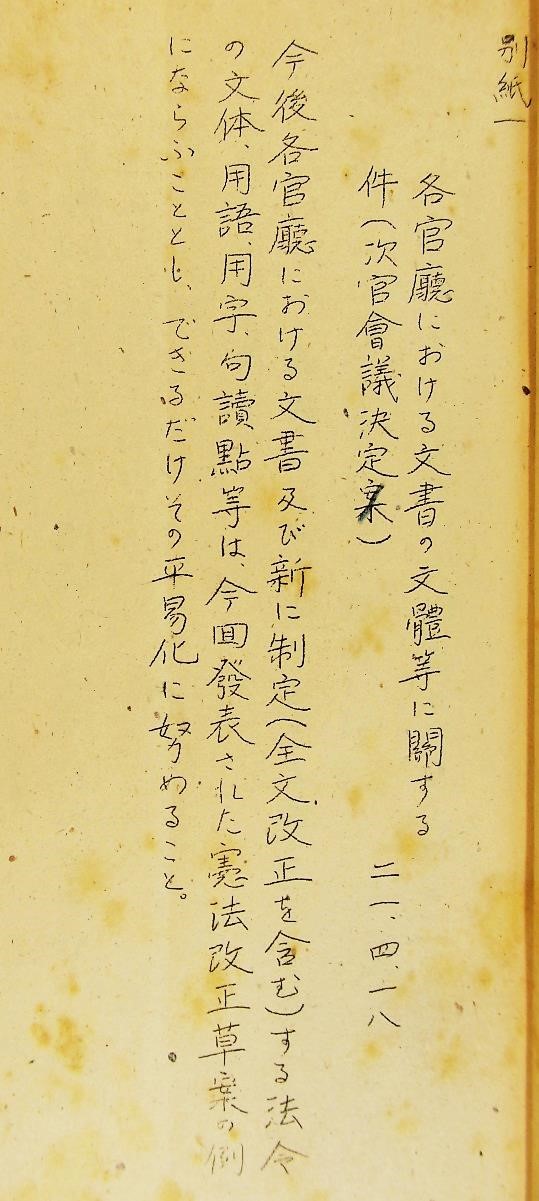 別紙一
各官廳における文書の文體等に關する
件(次官會議決定案)
二一、四、一八
今後各官廳における文書及び新に制定(全文改正を含む)する法令
の文体、用語、用字、句讀點等は、今回發表された憲法改正草案の例
にならふこととし、できるだけその平易化に努めること。